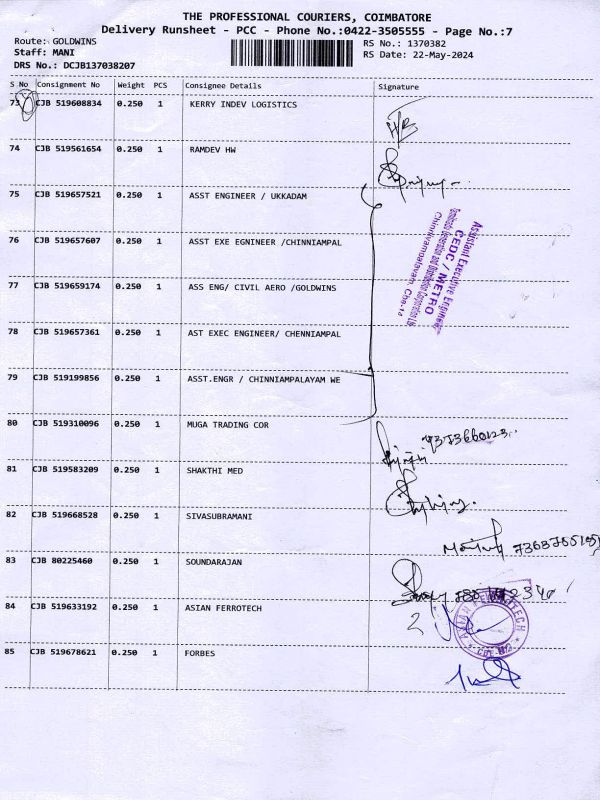 THE PROFESSIONAL COURIERS, COIMBATORE
Delivery Runsheet - PCC - Phone No.:0422-3505555 - Page No.:7
Route: GOLDWINS
RS No.: 1370382
Staff: MANI
RS Date: 22-May-2024
DRS No.: DCJB137038207
S No Consignment No Weight PCS Consignee Details Signature
73 CJB 519608834 0.250 1 KERRY INDEV LOGISTICS
74 CJB 519561654 0.250 1 RAMDEV HW
75 CJB 519657521 0.250 1 ASST ENGINEER / UKKADAM
76 CJB 519657607 0.250 1 ASST EXE EGNINEER /CHINNIAMPAL
77 CJB 519659174 0.250 1 ASS ENG/ CIVIL AERO /GOLDWINS
Assistant Executive Engineer
CEDC / METRO
78 CJB 519657361 0.250 1 AST EXEC ENGINEER/ CHENNIAMPAL
79 CJB 519199856 0.250 1 ASST.ENGR / CHINNIAMPALAYAM WE
80 CJB 519310096 0.250 1 MUGA TRADING COR
81 CJB 519583209 0.250 1 SHAKTHI MED
82 CJB 519668528 0.250 1 SIVASUBRAMANI
83 CJB 80225460 0.250 1 SOUNDARAJAN
84 CJB 519633192 0.250 1 ASIAN FERROTECH
85 CJB 519678621 0.250 1 FORBES